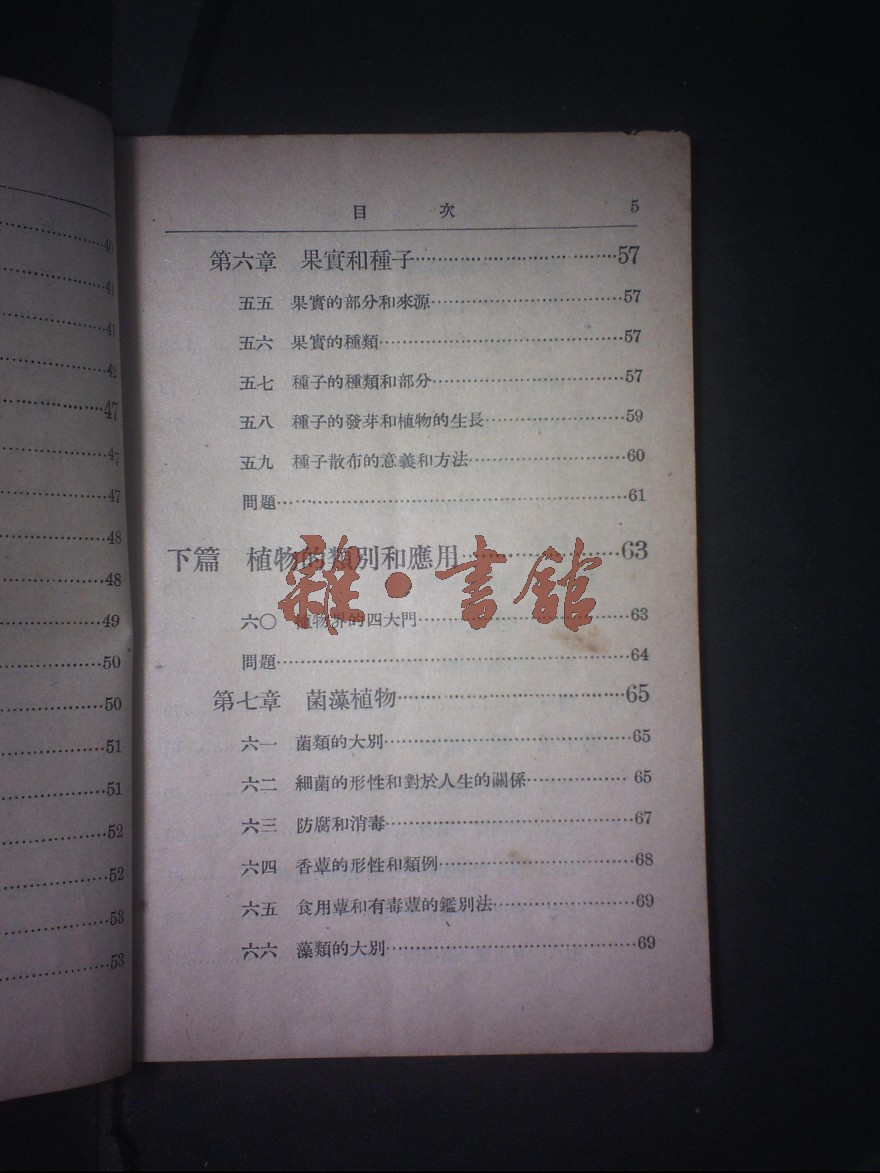 40
41
41
42
47
47
47
48
48
49
50
50
51
51
52
52
53
53
目 次 5
第六章 果實和種子 57
五五 果實的部分和來源 57
五六 果實的種類 57
五七 種子的種類和部分 57
五八 種子的發芽和植物的生長 59
五九 種子散布的意義和方法 60
問題 61
下篇 植物的類別和應用 63
雜·書館
六〇 植物界的四大門 63
問題 64
第七章 菌藻植物 65
六一 菌類的大別 65
六二 細菌的形性和對於人生的關係 65
六三 防腐和消毒 67
六四 香蕈的形性和類例 68
六五 食用蕈和有毒蕈的鑑別法 69
六六 藻類的大別 69